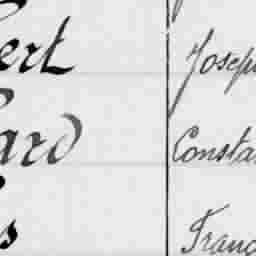 ert Joseph
ard Consta
s Franç